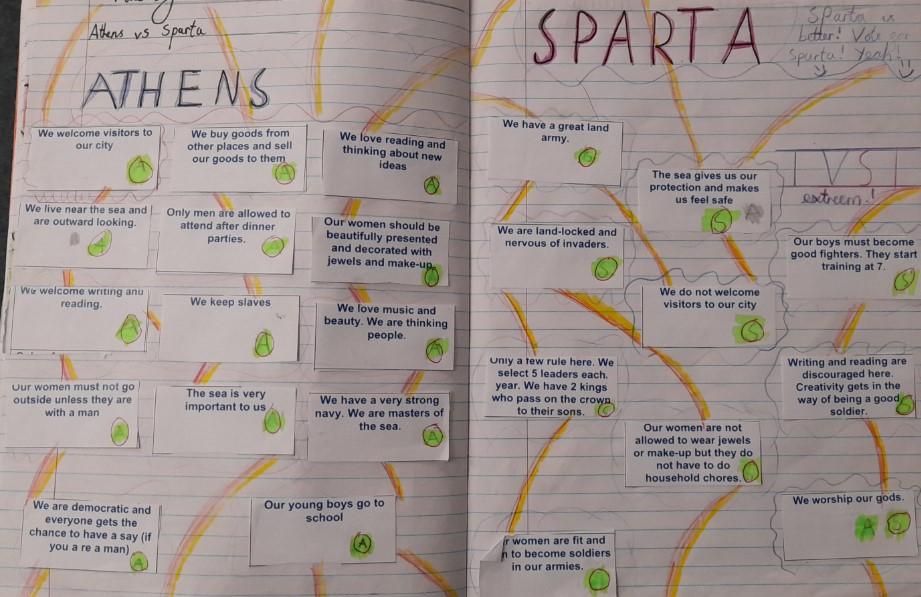 Athens vs Sparta
ATHENS
We welcome visitors to
our city
A
We buy goods from
other places and sell
our goods to them
A
We love reading and
thinking about new
ideas
A
We live near the sea and
are outward looking.
A
Only men are allowed to
attend after dinner
parties.
A
Our women should be
beautifully presented
and decorated with
jewels and make-up
A
We welcome writing and
reading.
A
We keep slaves
A
We love music and
beauty. We are thinking
people.
A
Our women must not go
outside unless they are
with a man
A
The sea is very
important to us
A
We have a very strong
navy. We are masters of
the sea.
A
We are democratic and
everyone gets the
chance to have a say (if
you a re a man)
A
Our young boys go to
school
A
SPARTA
Sparta is
better! Vote for
Sparta! Yeah!
We have a great land
army.
S
The sea gives us our
protection and makes
us feel safe
S A
VS
extreem!
We are land-locked and
nervous of invaders.
S
Our boys must become
good fighters. They start
training at 7.
S
We do not welcome
visitors to our city
S
Only a few rule here. We
select 5 leaders each
year. We have 2 kings
who pass on the crown
to their sons.
Writing and reading are
discouraged here.
Creativity gets in the
way of being a good
soldier.
S
Our women are not
allowed to wear jewels
or make-up but they do
not have to do
household chores.
We worship our gods.
A S
women are fit and
to become soldiers
in our armies.